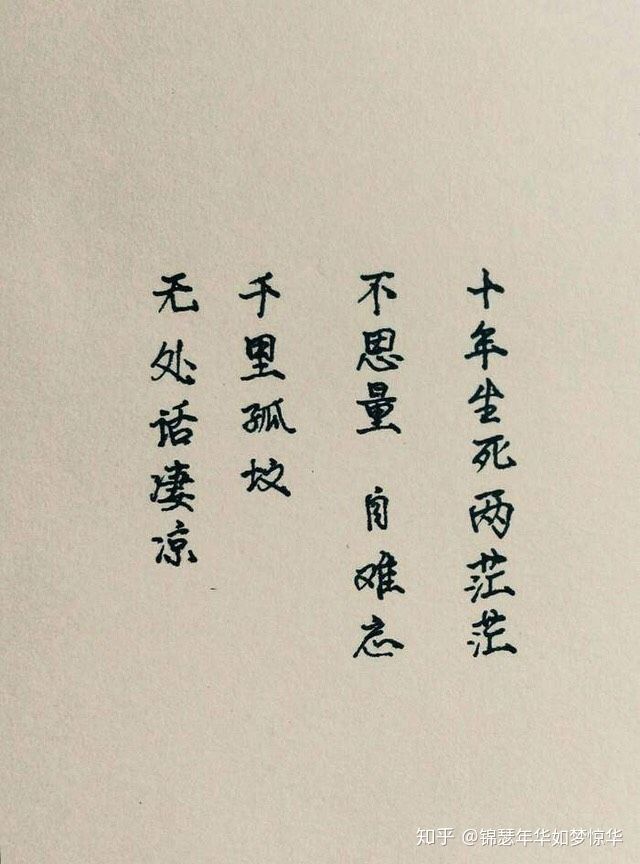 十年生死两茫茫
不思量 自难忘
千里孤坟
无处话凄凉
知乎 @锦瑟年华如梦惊华